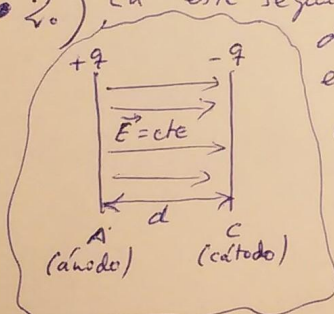 2.) En este segui
+q - q
E⃗ = cte
d
A C
(ánodo) (cátodo)